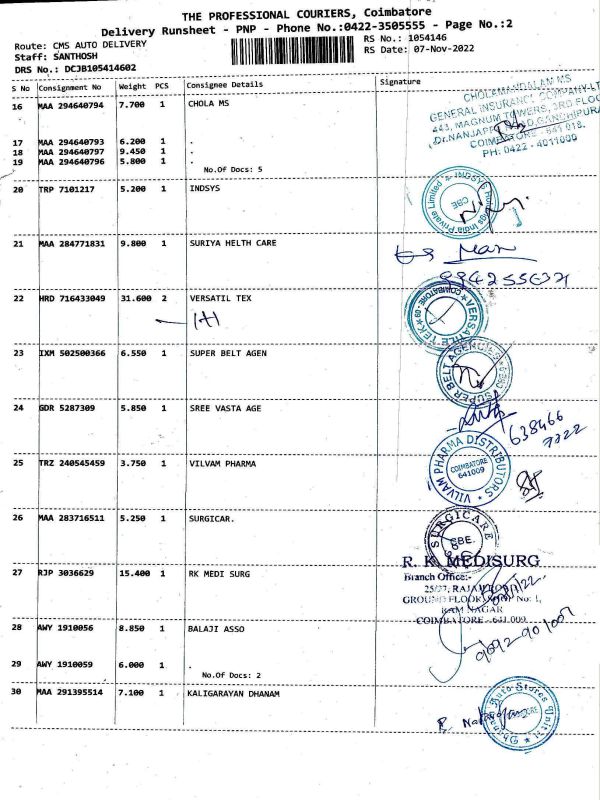 THE PROFESSIONAL COURIERS, Coimbatore
Delivery Runsheet - PNP - Phone No.:0422-3505555 - Page No.:2
Route: CMS AUTO DELIVERY
RS No.: 1054146
Staff: SANTHOSH
RS Date: 07-Nov-2022
DRS No.: DCJB105414602
S No Consignment No Weight PCS Consignee Details Signature
16 MAA 294640794 7.700 1 CHOLA MS
CHOLAMANDALAM MS
GENERAL INSURANCE COMPANY LT
443, MAGNUM TOWERS, 3RD FLOO
COIMBATORE - 641 018.
PH: 0422 - 4011000
17 MAA 294640793 6.200 1 .
18 MAA 294640797 9.450 1 .
19 MAA 294640796 5.800 1 .
No.Of Docs: 5
20 TRP 7101217 5.200 1 INDSYS
INDSYS Holdings India Private Limited
CBE
21 MAA 284771831 9.800 1 SURIYA HELTH CARE
22 HRD 716433049 31.600 2 VERSATIL TEX
1+1
VERSATILE TEK
COIMBATORE
23 IXM 502500366 6.550 1 SUPER BELT AGEN
SUPER BELT AGENCIES
24 GDR 5287309 5.850 1 SREE VASTA AGE
638466
7722
25 TRZ 240545459 3.750 1 VILVAM PHARMA
VILVAM PHARMA DISTRIBUTORS
COIMBATORE
641009
26 MAA 283716511 5.250 1 SURGICAR.
SURGICARE
CBE.
27 RJP 3036629 15.400 1 RK MEDI SURG
R. K. MEDISURG
Branch Office:-
GROUND FLOOR, No: 1,
RAM NAGAR
COIMBATORE - 641 009
28 AWY 1910056 8.850 1 BALAJI ASSO
29 AWY 1910059 6.000 1 .
No.Of Docs: 2
30 MAA 291395514 7.100 1 KALIGARAYAN DHANAM
Dhanam Auto Stores